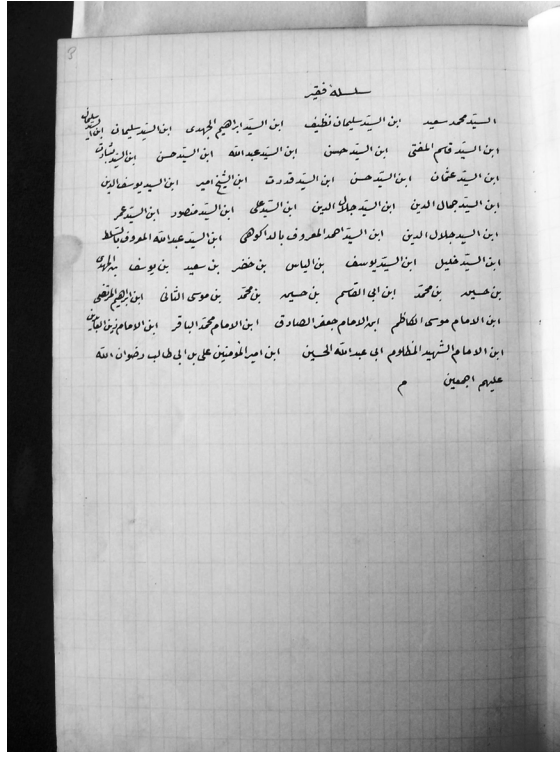 سلسلهٔ فقیر
السيّد محمد سعيد ابن السيّد سليمان نظيف ابن السيّد ابراهيم الجهدى ابن السيّد سليمان ابن السيّد سليمان
ابن السيّد قاسم المفتى ابن السيّد حسن ابن السيد عبدالله ابن السيّد حسن ابن السيّد
ابن السيّد عثمان ابن السيّد حسن ابن السيّد قدرت ابن الشيخ امير ابن السيد يوسف الدين
ابن السيّد جمال الدين ابن السيّد جلال الدين ابن السيّد على ابن السيّد منصور ابن السيّد عمر
ابن السيد جلال الدين ابن السيّد احمد المعروف بالداكوهى ابن السيّد عبدالله المعروف
ابن السيّد خليل ابن السيّد يوسف بن الياس بن خضر بن سعيد بن يوسف بن
بن حسين بن محمّد ابن ابى القاسم بن حسين بن محمّد بن موسى الثانى ابن ابراهيم المرتضى
ابن الامام موسى الكاظم ابن الامام جعفر الصادق ابن الامام محمّد الباقر ابن الامام زين العابدين
ابن الامام الشهيد المظلوم ابى عبدالله الحسين ابن امير المؤمنين على بن ابى طالب رضوان الله
عليهم اجمعين م